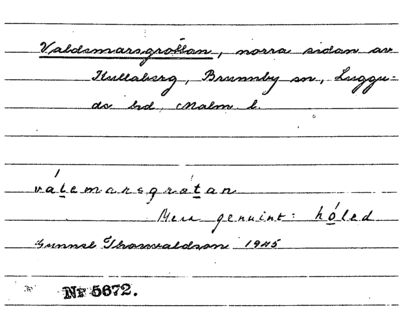 Valdemarsgrottan, norra sidan av
Kullaberg, Brunnby sn, Luggu=
de hd, Malm l.
válemarsgrɑ̀tan
Men genuint: hóled
Gunnel Thorvaldson 1945
Nr 5672.